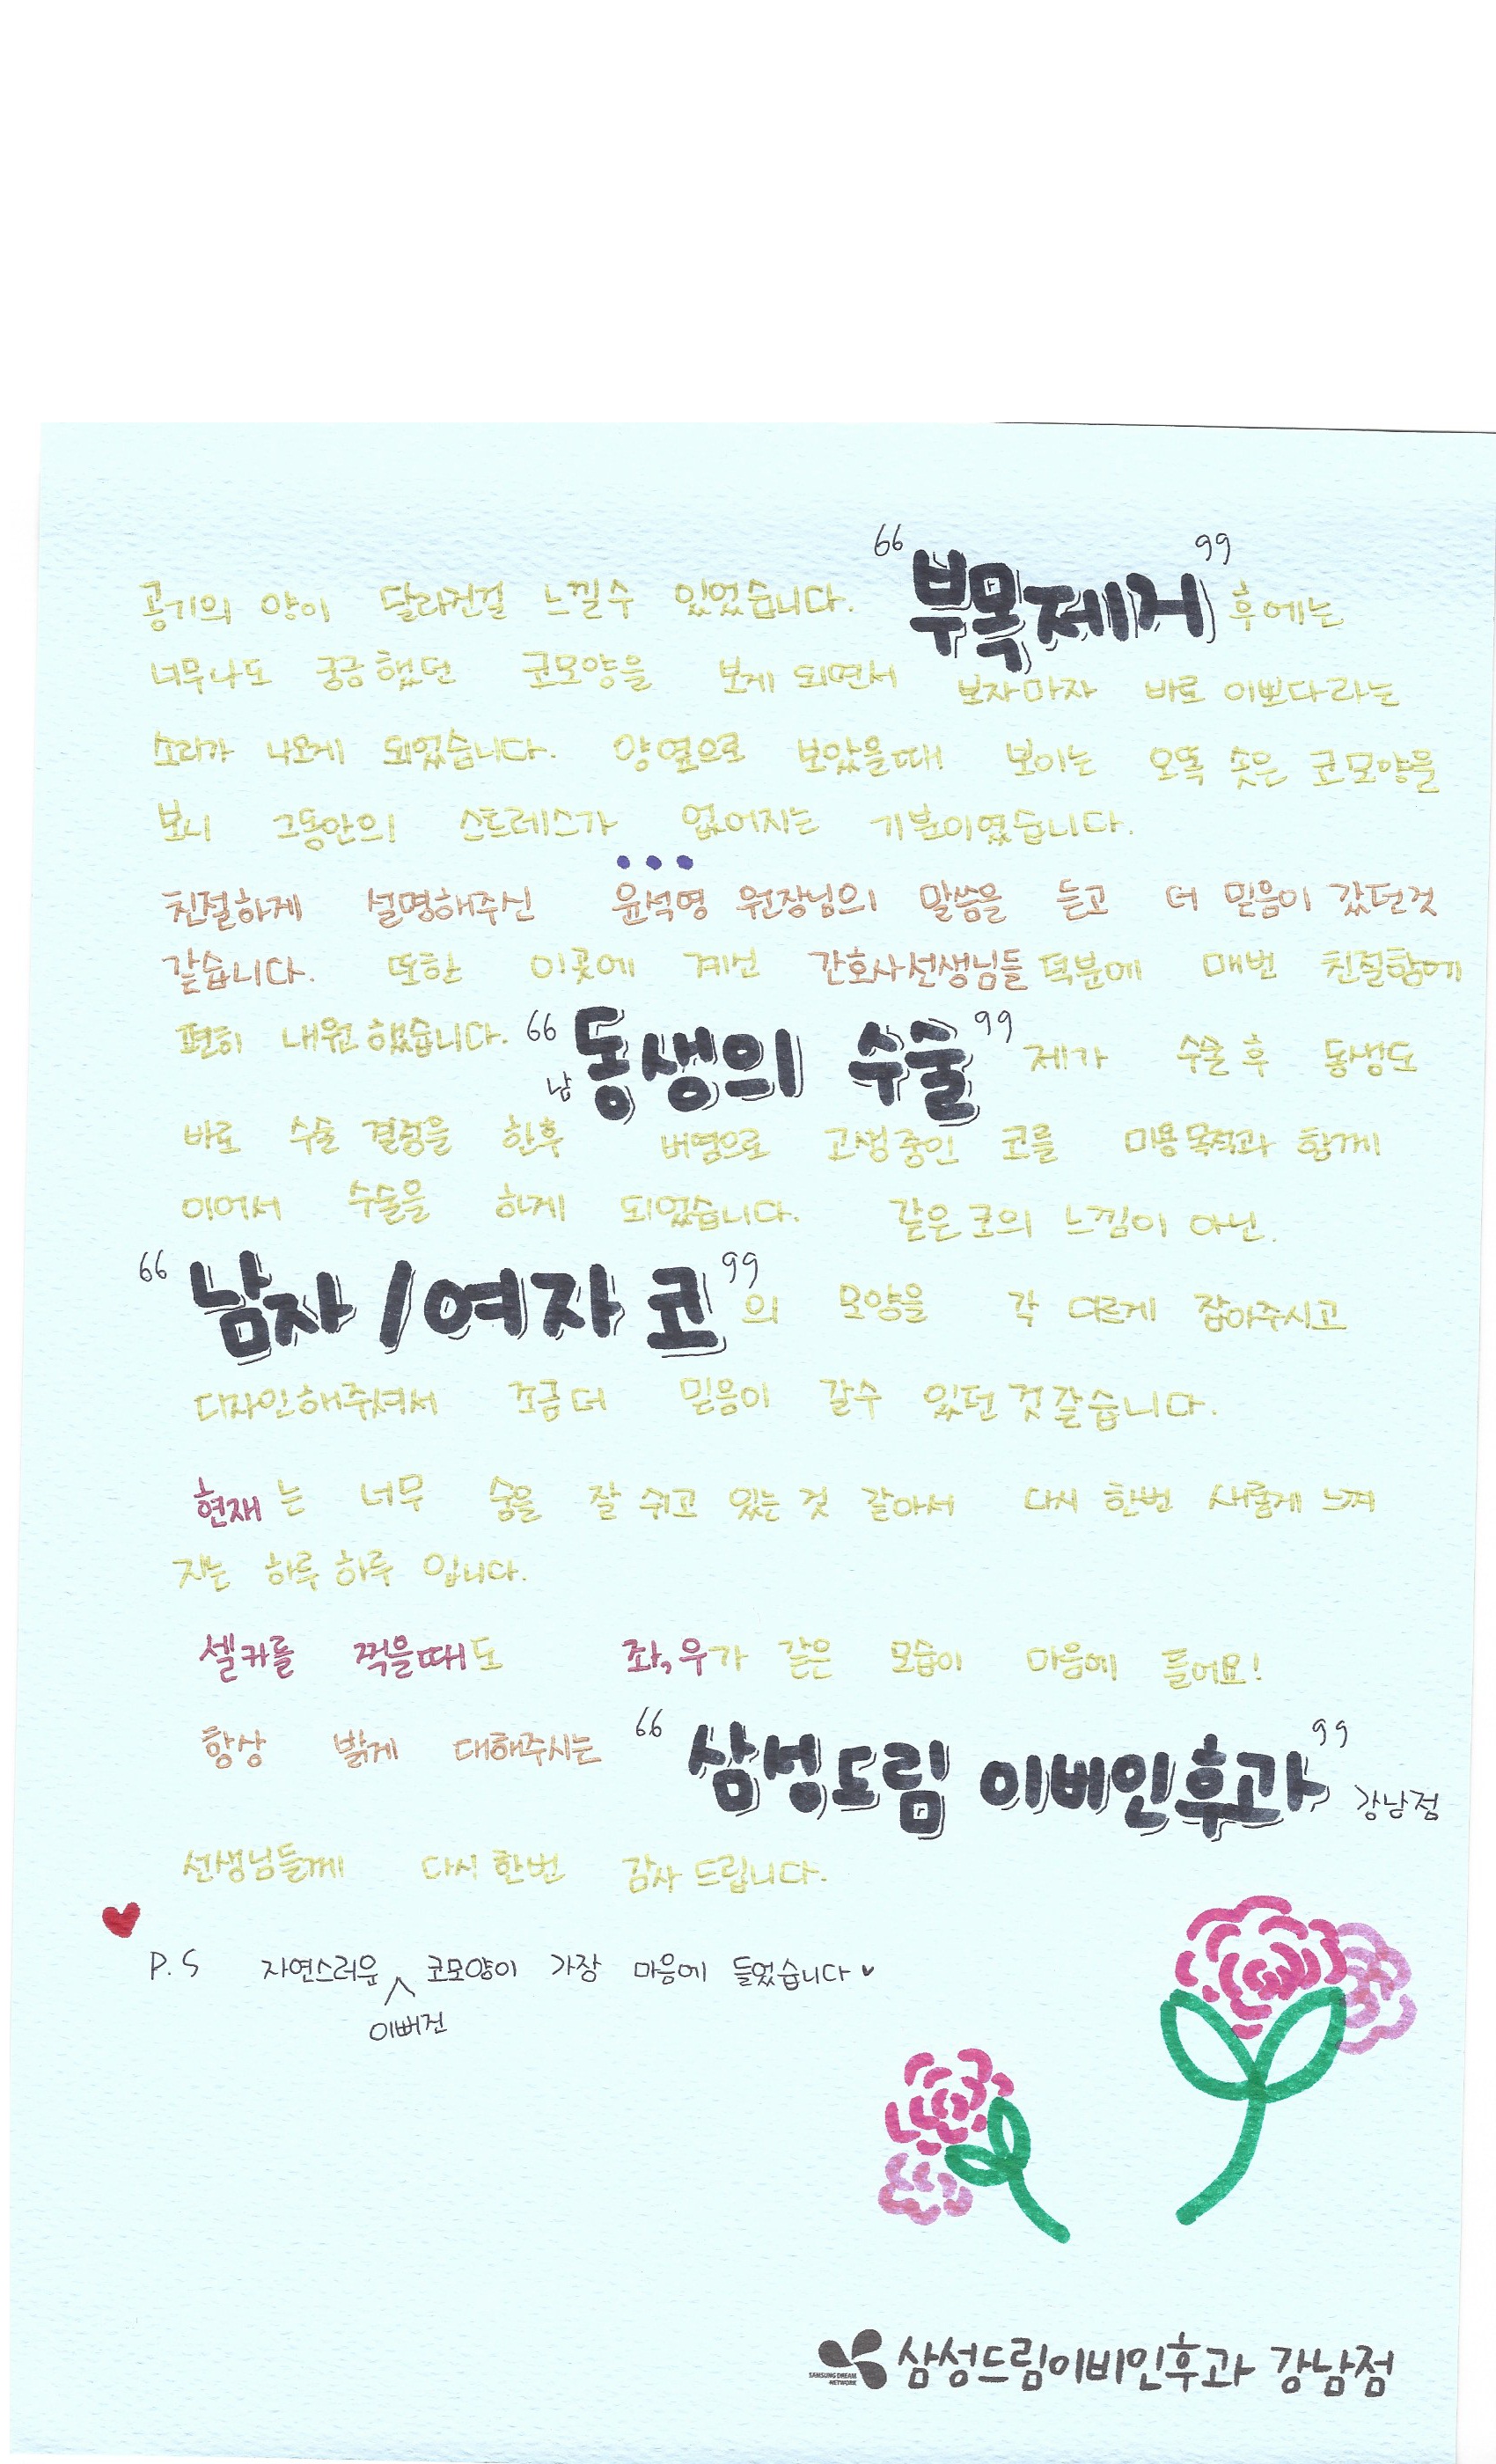 공기의 양이 달라진걸 느낄수 있었습니다. "부목제거" 후에는
너무나도 궁금했던 코모양을 보게 되면서 보자마자 바로 이쁘다라는
소리가 나오게 되었습니다. 양옆으로 보았을때! 보이는 오똑 솟은 코모양을
보니 그동안의 스트레스가 없어지는 기분이였습니다.
친절하게 설명해주신 윤석영 원장님의 말씀을 듣고 더 믿음이 갔던것
같습니다. 또한 이곳에 계신 간호사선생님들 덕분에 매번 친절함에
편히 내원했습니다. "남동생의 수술" 제가 수술 후 동생도
바로 수술 결정을 한후 비염으로 고생중인 코를 미용목적과 함께
이어서 수술을 하게 되었습니다. 같은 코의 느낌이 아닌.
"남자/여자 코"의 모양을 각 다르게 잡아주시고
디자인해주셔서 조금더 믿음이 갈수 있던것같습니다.
현재는 너무 숨을 잘 쉬고 있는 것 같아서 다시 한번 새롭게 느껴
지는 하루하루 입니다.
셀카를 찍을때도 좌,우가 같은 모습이 마음에 들어요!
항상 밝게 대해주시는 "삼성드림 이비인후과" 강남점
선생님들께 다시한번 감사드립니다.
P.S 자연스러운 코모양이 가장 마음에 들었습니다
이뻐진
SAMSUNG DREAM NETWORK 삼성드림이비인후과 강남점